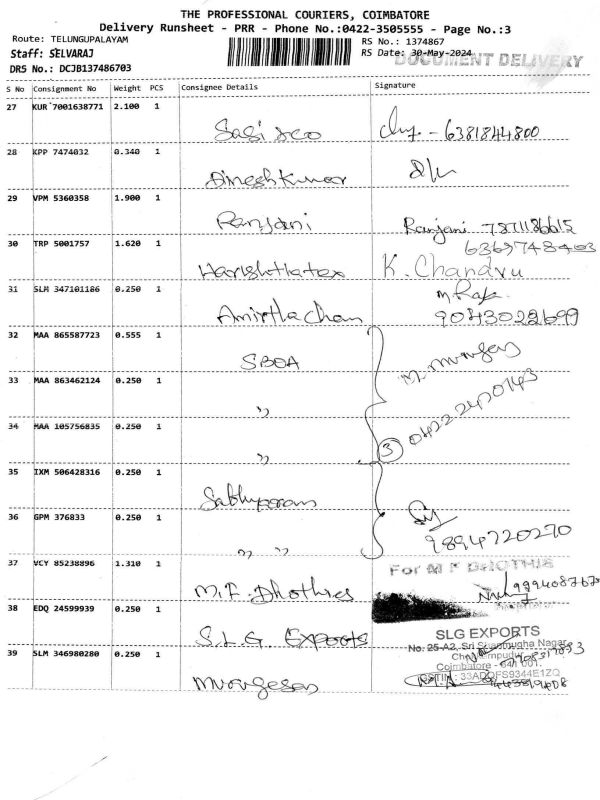 THE PROFESSIONAL COURIERS, COIMBATORE
Delivery Runsheet - PRR - Phone No.:0422-3505555 - Page No.:3
Route: TELUNGUPALAYAM
RS No.: 1374867
Staff: SELVARAJ
RS Date: 30-May-2024
DOCUMENT DELIVERY
DRS No.: DCJB137486703
S No Consignment No Weight PCS Consignee Details Signature
27 KUR 7001638771 2.100 1
6381844800
28 KPP 7474032 0.340 1
Dinesh Kumar
29 VPM 5360358 1.900 1
Ranjani Ranjani 7871186615
30 TRP 5001757 1.620 1
6369748403
K. Chandru
31 SLM 347101186 0.250 1
9043022699
32 MAA 865587723 0.555 1
SBOA
33 MAA 863462124 0.250 1
"
04222470143
34 MAA 105756835 0.250 1
"
3
35 IXM 506428316 0.250 1
36 GPM 376833 0.250 1
9894720270
" "
37 VCY 85238896 1.310 1
For M F DHOTHIS
M.F. Dhothies
38 EDQ 24599939 0.250 1
S.L.G. Exports
SLG EXPORTS
No. 25-A2, Sri Shanmugha Nagar,
39 SLM 346980280 0.250 1
Coimbatore - 641 001.
GSTIN : 33ADQFS9344E1ZQ
Murugesan